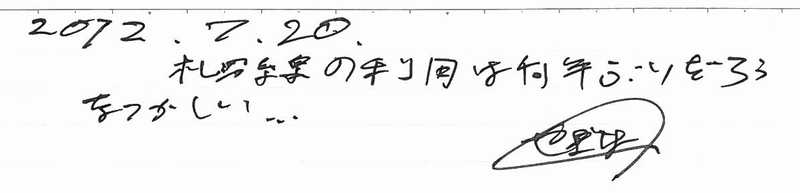 2012.7.20.
札沼線の利用は何年ぶりだろう
なつかしい…